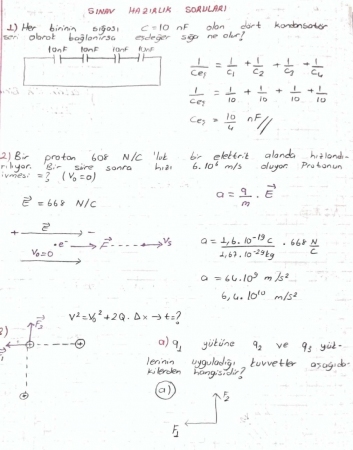 SINAV HAZIRLIK SORULARI
1) Her birinin sığası C=10 nF olan dört kondansatör
seri olarak bağlanırsa eşdeğer sığa ne olur?
10nF 10nF 10nF
1/Ceş = 1/C1 + 1/C2 + 1/C3 + 1/C4
1/Ceş = 1/10 + 1/10 + 1/10 + 1/10
Ceş = 10/4 nF //
2) Bir proton 608 N/C 'luk bir elektrik alanda hızlandı-
rılıyor. Bir süre sonra hızı 6.10⁶ m/s oluyor. Protonun
ivmesi =? (V₀=0)
E = 668 N/C
a = q/m . E
+ E -
V₀=0
a = 1,6.10⁻¹⁹ C / . 668 N/C
a = 64.10⁹ m/s²
6,4.10¹⁰ m/s²
V² = V₀² + 2a.Δx → t=?
a) q₁ yüküne q₂ ve q₃ yük-
lerinin uyguladığı kuvvetler aşağıda-
kilerden hangisidir?
F₃
a)
F₂